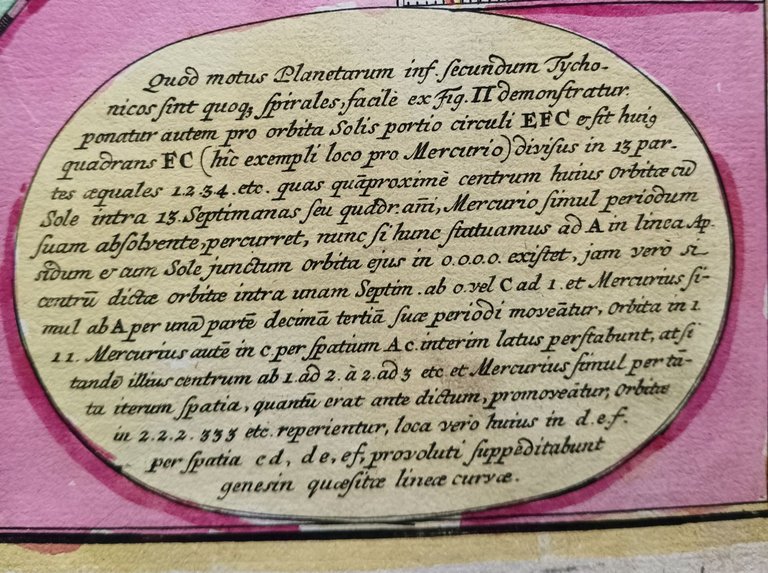 Quod motus Planetarum inf. secundum Tycho-
nicos sint quoq; spirales, facilè ex Fig. II demonstratur.
ponatur autem pro orbita Solis portio circuli EFC & sit huiq
quadrans FC (hîc exempli loco pro Mercurio) divisus in 13 par-
tes æquales 1.2.3.4. etc. quas quāproximè centrum huius Orbitæ cū
Sole intra 13. Septimanas seu quadr. añi, Mercurio simul periodum
suam absolvente, percurret, nunc si hunc statuamus ad A in linea Ap-
sidum & cum Sole junctum Orbita ejus in 0.0.0.0. existet, jam verò si
centrū dictæ orbitæ intra unam Septim. ab 0. vel C ad 1. et Mercurius si-
mul ab A per unā partē decimā tertiā suæ periodi moveātur, Orbita in 1.
1 1. Mercurius autē in c per spatium A c. interim latus perstabunt, at si
tandē illius centrum ab 1. ad 2. à 2. ad 3 etc et Mercurius simul per tā-
ta iterum spatia, quantū erat ante dictum, promoveātur, Orbitæ
in 2.2.2. 333 etc. reperientur, loca verò huius in d. e. f.
per spatia cd, de, ef, provoluti suppeditabunt
genesin quæsitæ lineæ curvæ.